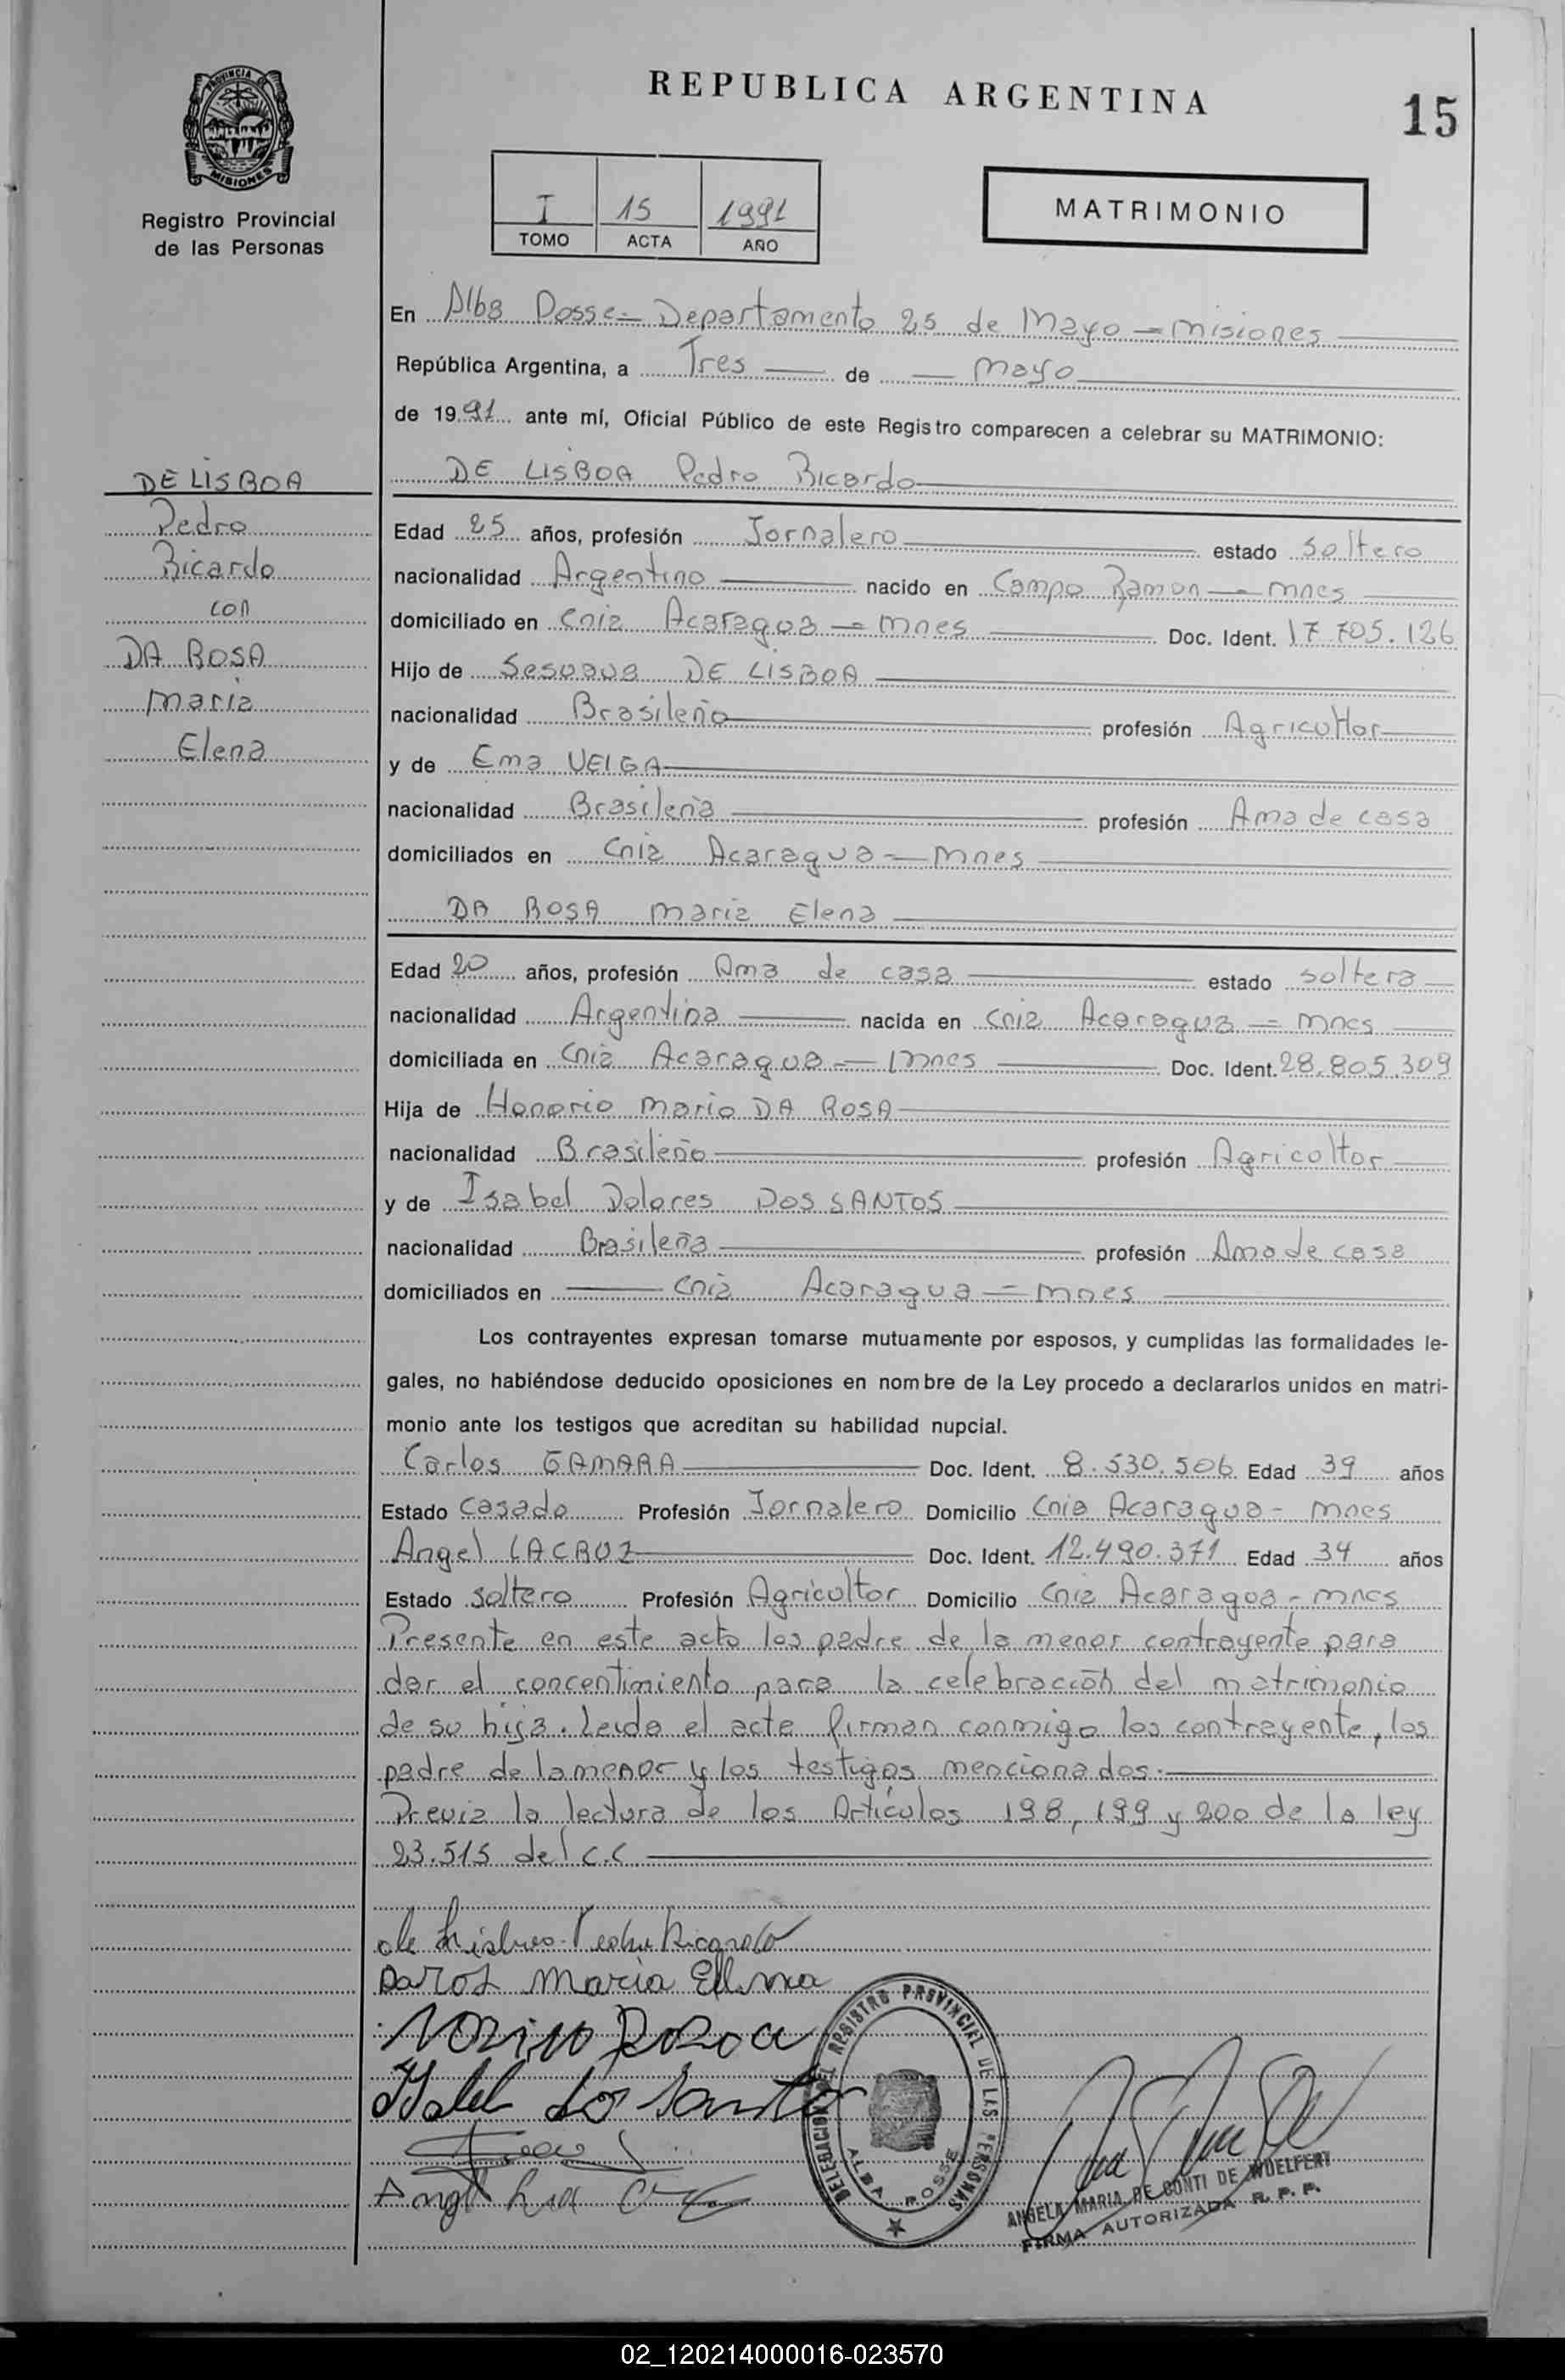 REPUBLICA ARGENTINA
15
PROVINCIA DE
MISIONES
Registro Provincial
de las Personas
I 15 1991
TOMO ACTA AÑO
MATRIMONIO
En Alba Posse - Departamento 25 de Mayo - misiones
República Argentina, a Tres de mayo
de 1991 ante mí, Oficial Público de este Registro comparecen a celebrar su MATRIMONIO:
DE LISBOA Pedro Ricardo
DE LISBOA
Pedro
Ricardo
con
DA ROSA
maria
Elena
Edad 25 años, profesión Jornalero estado soltero
nacionalidad Argentino nacido en Campo Ramon - mnes
domiciliado en Cnia Acaragua - mnes Doc. Ident. 17.705.126
Hijo de DE LISBOA
nacionalidad Brasileño profesión Agricultor
y de Ema VEIGA
nacionalidad Brasileña profesión Ama de casa
domiciliados en Cnia Acaragua - mnes
DA ROSA maria Elena
Edad 20 años, profesión Ama de casa estado soltera
nacionalidad Argentina nacida en Cnia Acaragua - mnes
domiciliada en Cnia Acaragua - mnes Doc. Ident. 28.805.309
Hija de Honorio mario DA ROSA
nacionalidad Brasileño profesión Agricultor
y de Isabel Dolores DOS SANTOS
nacionalidad Brasileña profesión Ama de casa
domiciliados en Cnia Acaragua - mnes
Los contrayentes expresan tomarse mutuamente por esposos, y cumplidas las formalidades le-
gales, no habiéndose deducido oposiciones en nombre de la Ley procedo a declararlos unidos en matri-
monio ante los testigos que acreditan su habilidad nupcial.
Carlos GAMARA Doc. Ident. 8.530.506 Edad 39 años
Estado casado Profesión Jornalero Domicilio Cnia Acaragua - mnes
Angel LACRUZ Doc. Ident. 12.490.371 Edad 34 años
Estado soltero Profesión Agricultor Domicilio Cnia Acaragua - mnes
Presente en este acto los padre de la menor contrayente para
dar el concentimiento para la celebración del matrimonio
de su hija. Leida el acta firman conmigo los contrayente, los
padre de la menor y los testigos mencionados.
Previa la lectura de los Artículos 198, 199 y 200 de la ley
23.515 del C.C
de Lisboa Pedro Ricardo
maria
Isabel do Santo
DELEGACION DEL REGISTRO PROVINCIAL DE LAS PERSONAS
ALBA POSSE
ANGELA MARIA DE CONTI DE WUELFERT
FIRMA AUTORIZADA R. P. P.
02_120214000016-023570